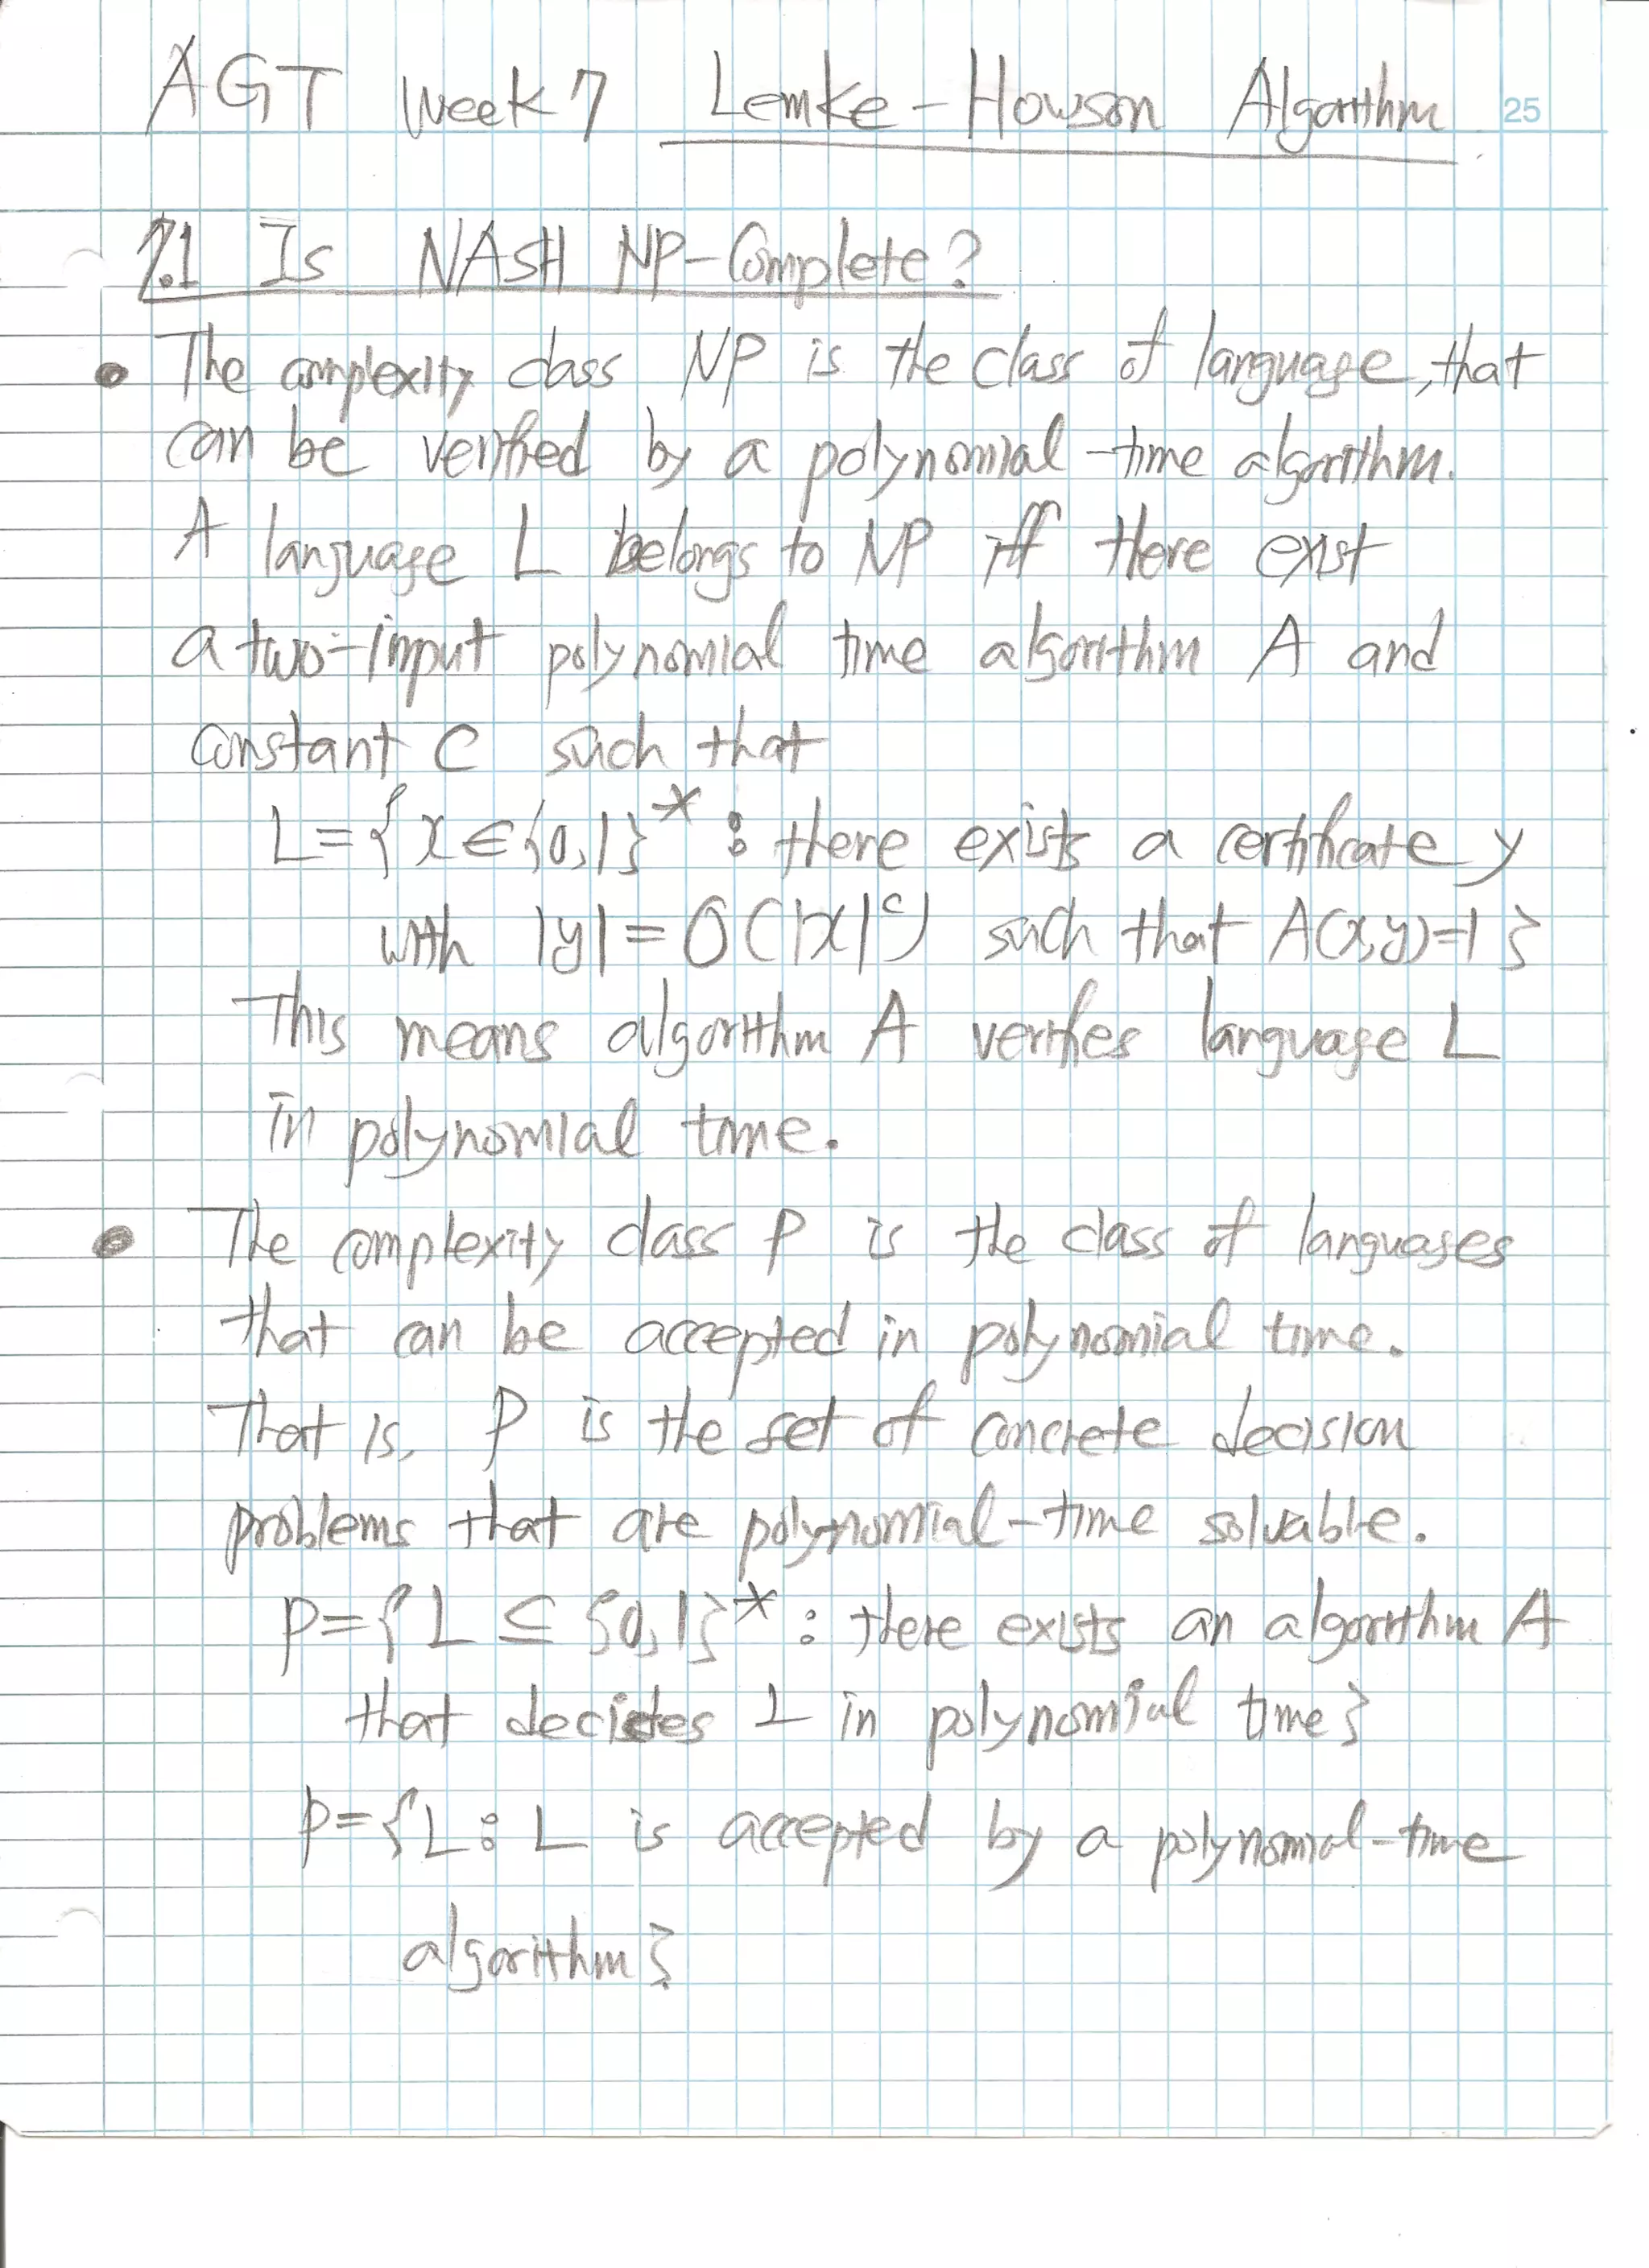 AGT Week 7 Lemke-Howson Algorithm 25
7.1 Is NASH NP-Complete?
• The complexity class NP is the class of language, that
can be verified by a polynomial-time algorithm.
A language L belongs to NP iff there exist
a two-input polynomial time algorithm A and
constant C such that
L={x∈{0,1}* : there exists a certificate y
with |y|=O(|x|^c) such that A(x,y)=1}
This means algorithm A verifies language L
in polynomial time.
• The complexity class P is the class of languages
that can be accepted in polynomial time.
That is, P is the set of concrete decision
problems that are polynomial-time solvable.
P={L ⊆ {0,1}* : there exists an algorithm A
that decides L in polynomial time}
P={L : L is accepted by a polynomial-time
algorithm}